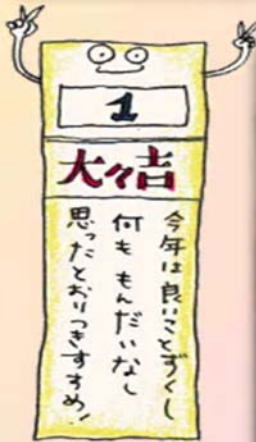 1
大々吉
今年は良いことずくし
何ももんだいなし
思ったとおりつきすすめ!